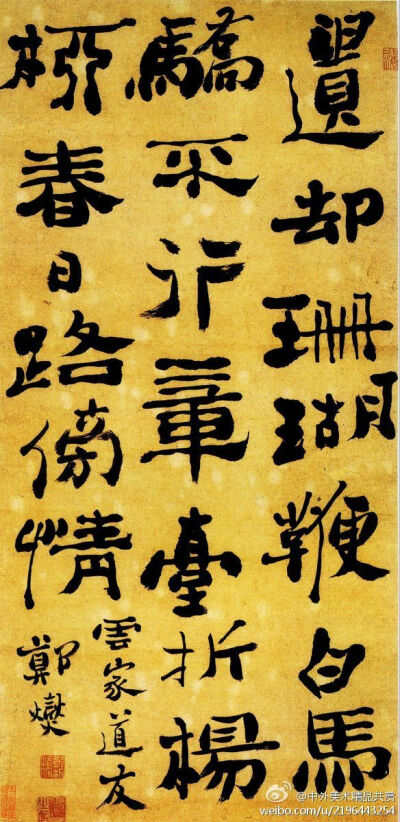 遺却珊瑚鞭白馬
驕不行章臺折楊
桺春日路傍情
雲家道友
鄭燮
@中外美术精品共赏
weibo.com/u/2196443254